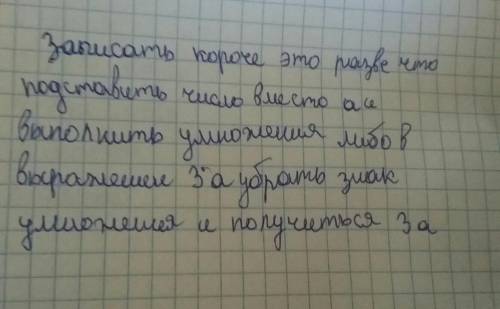 Записать короче это разве что
подставить число вместо а и
выполнить умножения либо в
выражении 3·а убрать знак
умножения и получиться 3а